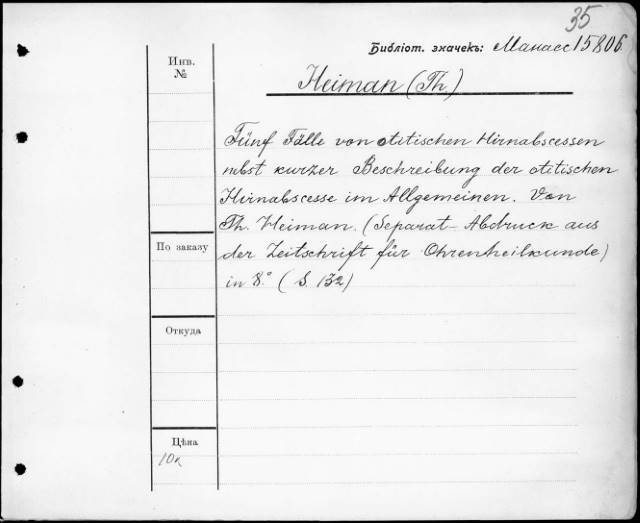 35
Библіот. значекъ: Манасс 15806
Инв.
№
Heiman (Th)
Fünf Fälle von otitischen Hirnabscessen
nebst kurzer Beschreibung der otitischen
Hirnabscesse im Allgemeinen. Von
Th. Heiman. (Separat-Abdruck aus
der Zeitschrift für Ohrenheilkunde)
in 8.° (S. 132)
По заказу
Откуда
Цѣна
10к